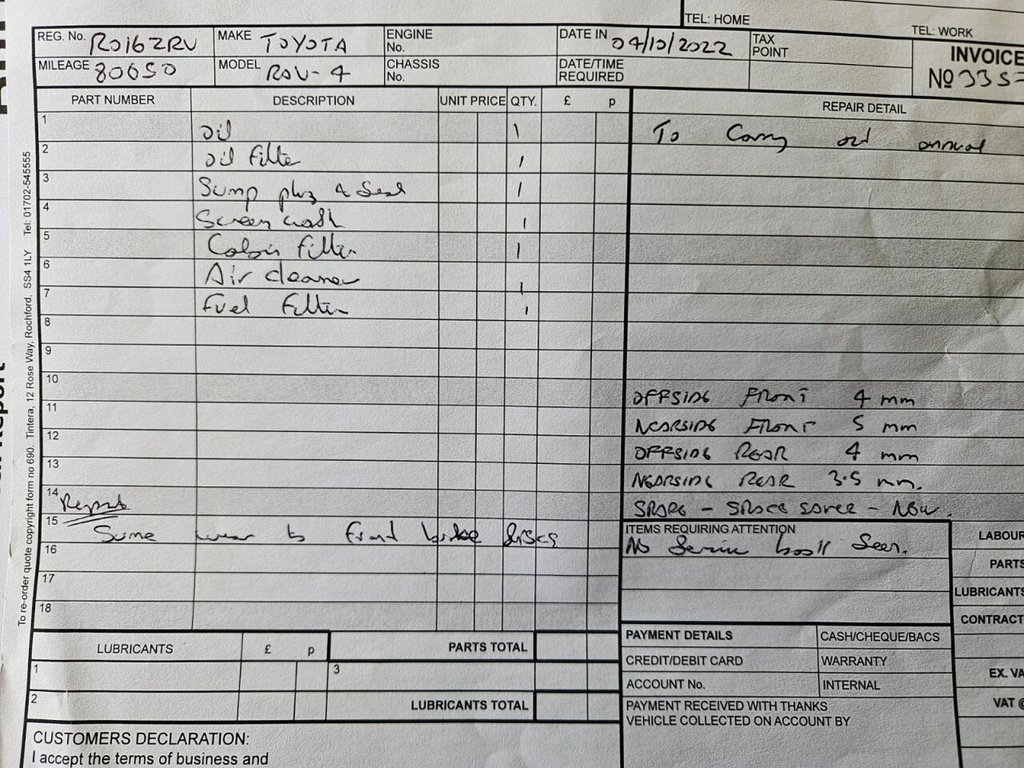 TEL: HOME
TEL: WORK
REG. No. RO16ZRV MAKE TOYOTA ENGINE No. DATE IN 04/10/2022 TAX POINT INVOICE
MILEAGE 80650 MODEL RAV-4 CHASSIS No. DATE/TIME REQUIRED No 335
PART NUMBER DESCRIPTION UNIT PRICE QTY. £ p REPAIR DETAIL
1 Oil 1 To Carry out annual
2 Oil Filter 1
3 Sump plug & Seal 1
4 Screen wash 1
5 Cabin Filter 1
6 Air cleaner 1
7 Fuel Filter 1
8
9
10 OFFSIDE FRONT 4 mm
11 NEARSIDE FRONT 5 mm
12 OFFSIDE REAR 4 mm
13 NEARSIDE REAR 3.5 mm.
14 Report SPARE - SPACE SAVER - NEW.
15 Some wear to Front brake discs ITEMS REQUIRING ATTENTION LABOUR
16 No Service book Seen. PARTS
17 LUBRICANTS
18 CONTRACT
LUBRICANTS £ p PARTS TOTAL PAYMENT DETAILS CASH/CHEQUE/BACS
1 3 CREDIT/DEBIT CARD WARRANTY EX. VA
2 LUBRICANTS TOTAL ACCOUNT No. INTERNAL VAT @
PAYMENT RECEIVED WITH THANKS
VEHICLE COLLECTED ON ACCOUNT BY
CUSTOMERS DECLARATION:
I accept the terms of business and
To re-order quote copyright form no 690. Tintera, 12 Rose Way, Rochford, SS4 1LY Tel: 01702-545555